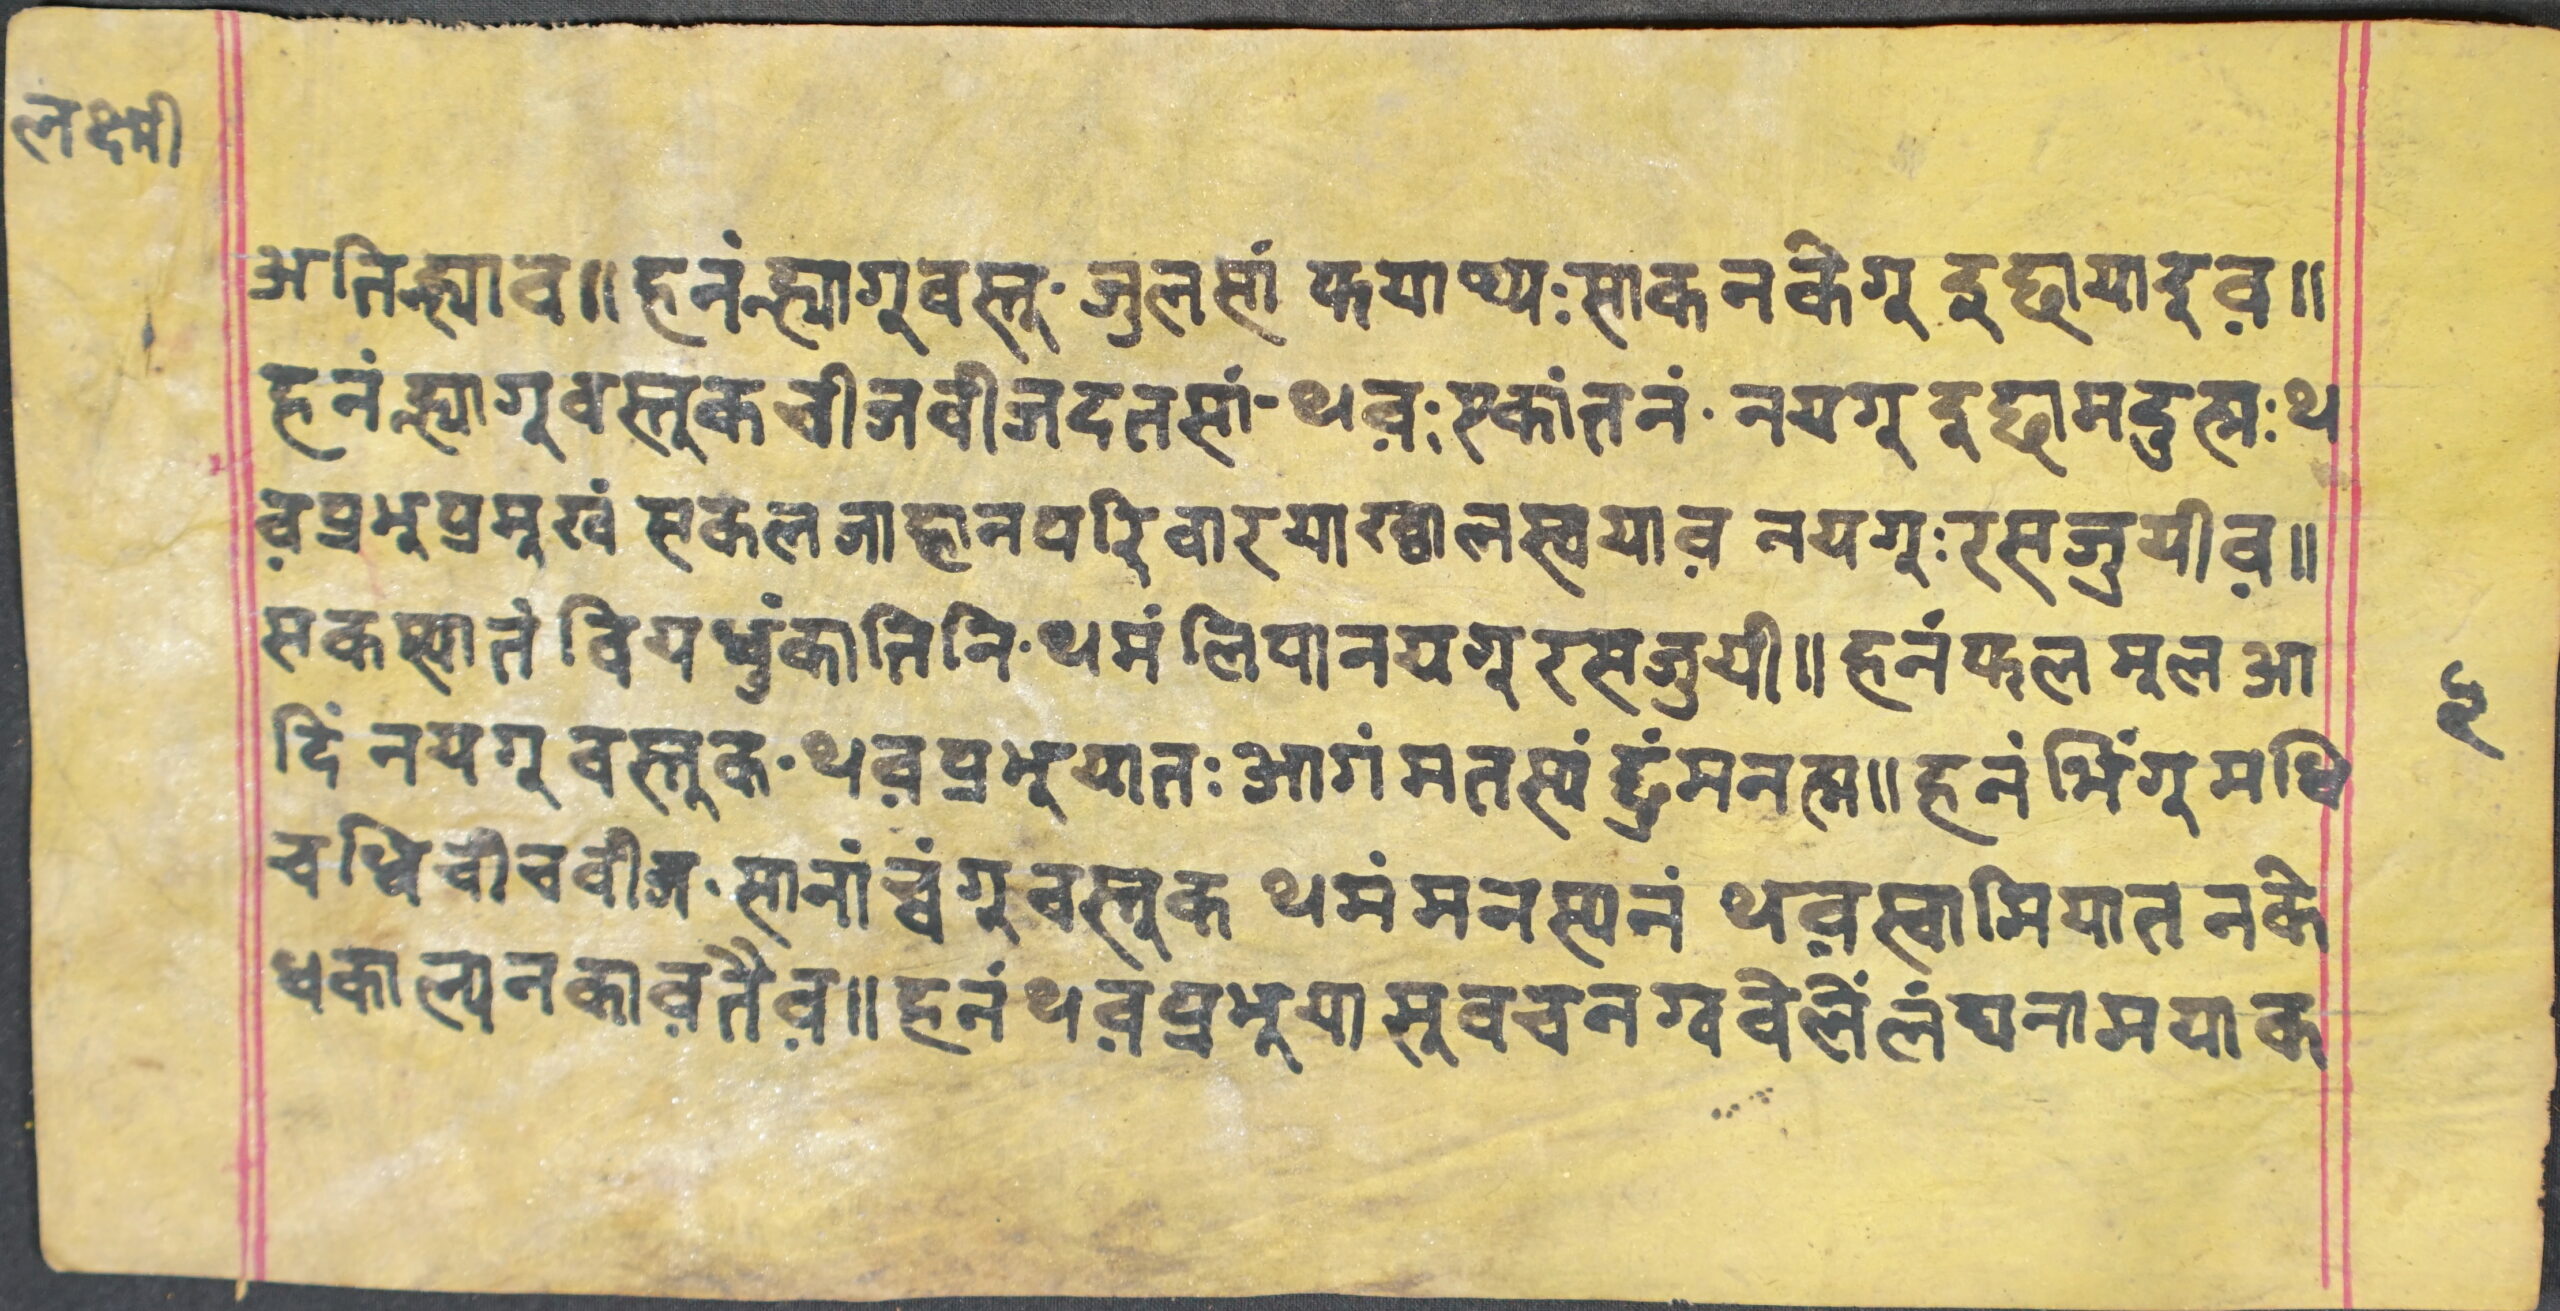 लक्ष्मी
अतिन्ह्याव॥ हनंन्ह्यागुवस्तु· जुलसां फयाथ्यः साकनकेगु दुह्मायादुव॥
हनंन्ह्यागुवस्तुक चीजवीजदतसां· थवः स्कांतनं· नयगु दुह्मामदुत्मः थ
वप्रभुप्रमुखं सकलजाहानपरिवारयाख्वालस्वयाव नयगुः रसजुयीव॥
सकस्यातं वियधुंकातिनि· थमं लिपानयगु रसजुयी॥ हनंफलमूलआ
दिं नयगुवस्तुक· थवप्रभुयातः आगंमतस्यं मनत्म॥ हनं भिंगुमधि
चधि चीचवीज· सानांच्वंगुवस्तुक थमंमनस्यनं थवस्वामियात नके
धकाल्यनकावतैव॥ हनंथवप्रभुयासुवचनग्ववेलें लंघनामयाक